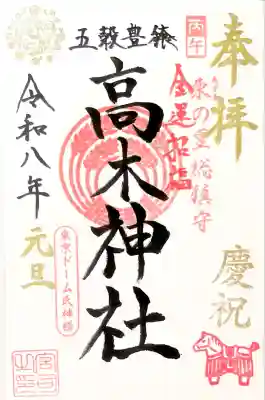 奉拝
慶祝
丙午
東の里総鎮守
金運招福
五穀豊穣
高木神社
東京ドーム氏神様
令和八年
元旦